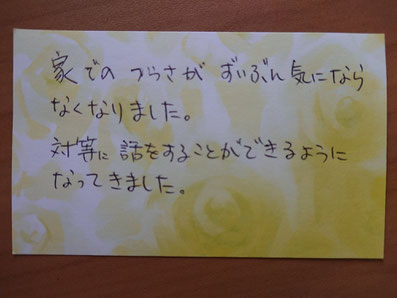 家での つらさが ずいぶん気になら
なくなりました。
対等に 話をすることができるように
なってきました。